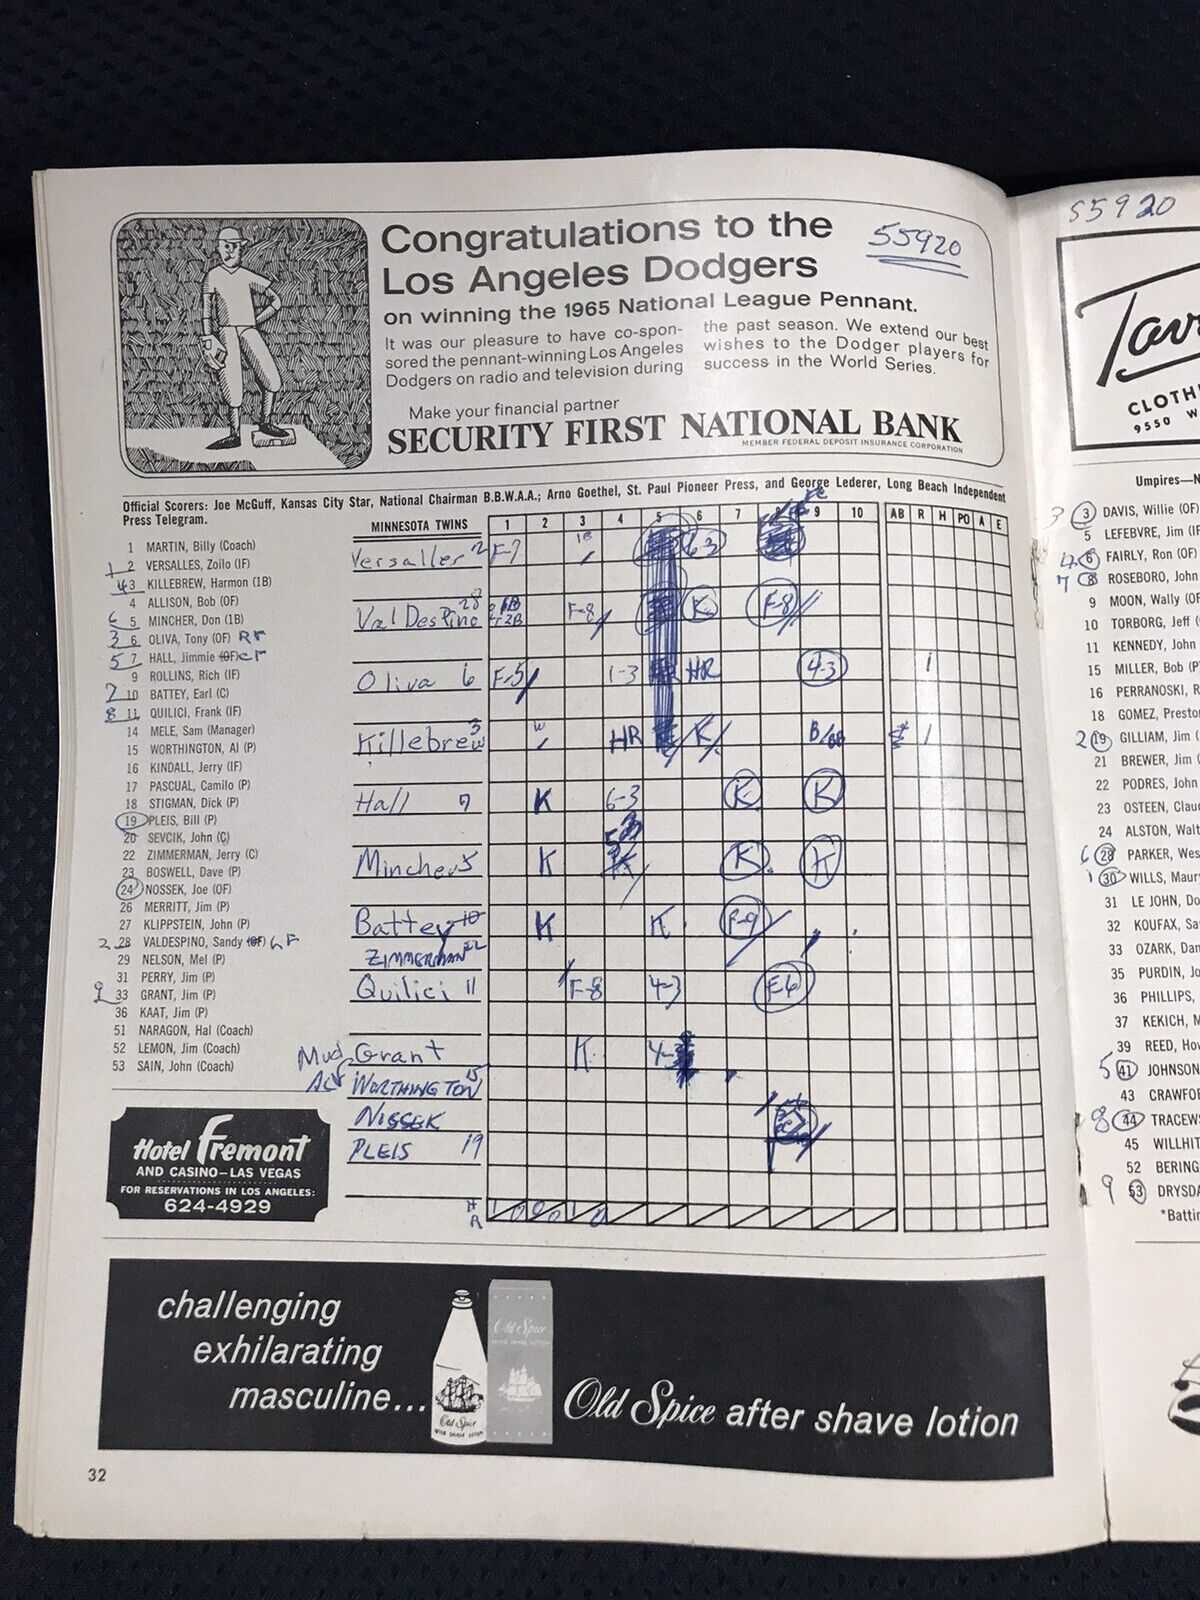 Congratulations to the
Los Angeles Dodgers
55920
on winning the 1965 National League Pennant.
It was our pleasure to have co-spon-
sored the pennant-winning Los Angeles
Dodgers on radio and television during
the past season. We extend our best
wishes to the Dodger players for
success in the World Series.
Make your financial partner
SECURITY FIRST NATIONAL BANK
MEMBER FEDERAL DEPOSIT INSURANCE CORPORATION
Official Scorers: Joe McGuff, Kansas City Star, National Chairman B.B.W.A.A.; Arno Goethel, St. Paul Pioneer Press, and George Lederer, Long Beach Independent
Press Telegram.
1 MARTIN, Billy (Coach)
1 2 VERSALLES, Zoilo (IF)
4 3 KILLEBREW, Harmon (1B)
4 ALLISON, Bob (OF)
6 5 MINCHER, Don (1B)
3 6 OLIVA, Tony (OF) RF
5 7 HALL, Jimmie (OF) CF
9 ROLLINS, Rich (IF)
7 10 BATTEY, Earl (C)
8 11 QUILICI, Frank (IF)
14 MELE, Sam (Manager)
15 WORTHINGTON, Al (P)
16 KINDALL, Jerry (IF)
17 PASCUAL, Camilo (P)
18 STIGMAN, Dick (P)
19 PLEIS, Bill (P)
20 SEVCIK, John (C)
22 ZIMMERMAN, Jerry (C)
23 BOSWELL, Dave (P)
24 NOSSEK, Joe (OF)
26 MERRITT, Jim (P)
27 KLIPPSTEIN, John (P)
2 28 VALDESPINO, Sandy (OF) LF
29 NELSON, Mel (P)
31 PERRY, Jim (P)
9 33 GRANT, Jim (P)
36 KAAT, Jim (P)
51 NARAGON, Hal (Coach)
52 LEMON, Jim (Coach)
53 SAIN, John (Coach)
MINNESOTA TWINS 1 2 3 4 5 6 7 8 9 10 AB R H PO A E
Versalles 2 F-7 1B 6-3
ValDespino 28 2B F-8 K F-8
Oliva 6 F-5 1-3 HR 4-3 1
Killebrew 3 W HR K B/BB 1
Hall 7 K 6-3 K K
Mincher 5 K K K
Battey 10 K K F-9
ZIMMERMAN 22
Quilici 11 F-8 4-3 F-6
Mud Grant K 4-3
Al WORTHINGTON 15
NISSEK
PLEIS 19
H
A
1 0 0 0 1 0
Hotel Fremont
AND CASINO—LAS VEGAS
FOR RESERVATIONS IN LOS ANGELES:
624-4929
challenging
exhilarating
masculine...
Old Spice
AFTER SHAVE LOTION
Old Spice
Old Spice after shave lotion
32
55920
Tav
CLOTH
9550 W
Umpires—N
3 3 DAVIS, Willie (OF)
5 LEFEBVRE, Jim (IF
4 6 FAIRLY, Ron (OF)
7 8 ROSEBORO, John
9 MOON, Wally (OF
10 TORBORG, Jeff (
11 KENNEDY, John
15 MILLER, Bob (P
16 PERRANOSKI, R
18 GOMEZ, Presto
2 19 GILLIAM, Jim (
21 BREWER, Jim (
22 PODRES, John
23 OSTEEN, Clau
24 ALSTON, Walt
6 28 PARKER, Wes
1 30 WILLS, Maury
31 LE JOHN, Do
32 KOUFAX, Sa
33 OZARK, Dan
35 PURDIN, Jo
36 PHILLIPS,
37 KEKICH, M
39 REED, Ho
5 41 JOHNSON
43 CRAWFO
8 44 TRACEWS
45 WILLHIT
52 BERING
9 53 DRYSDA
*Battin